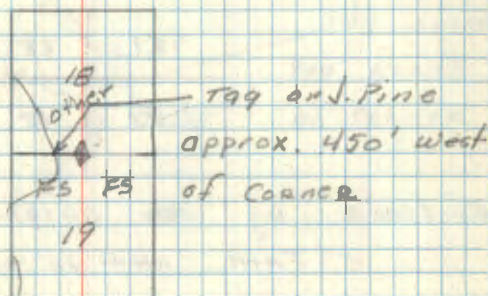 18
other
Tag and. Pine
approx. 450' west
of Corner
FS FS
19